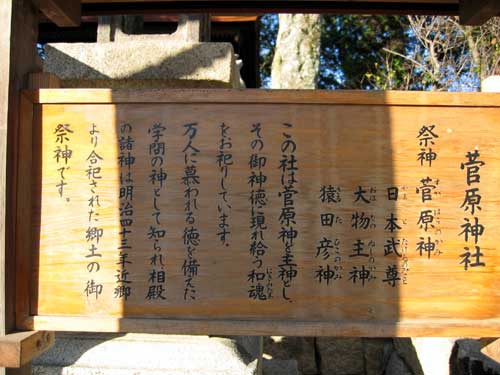 菅原神社
祭神 菅原神
日本武尊
大物主神
猿田彦神
この社は菅原神を主神とし、
その御神徳を現れ給う和魂
をお祀りしています。
万人に慕われる徳を備えた
学問の神として知られ相殿
の諸神は明治四十三年近郷
より合祀された郷土の御
祭神です。